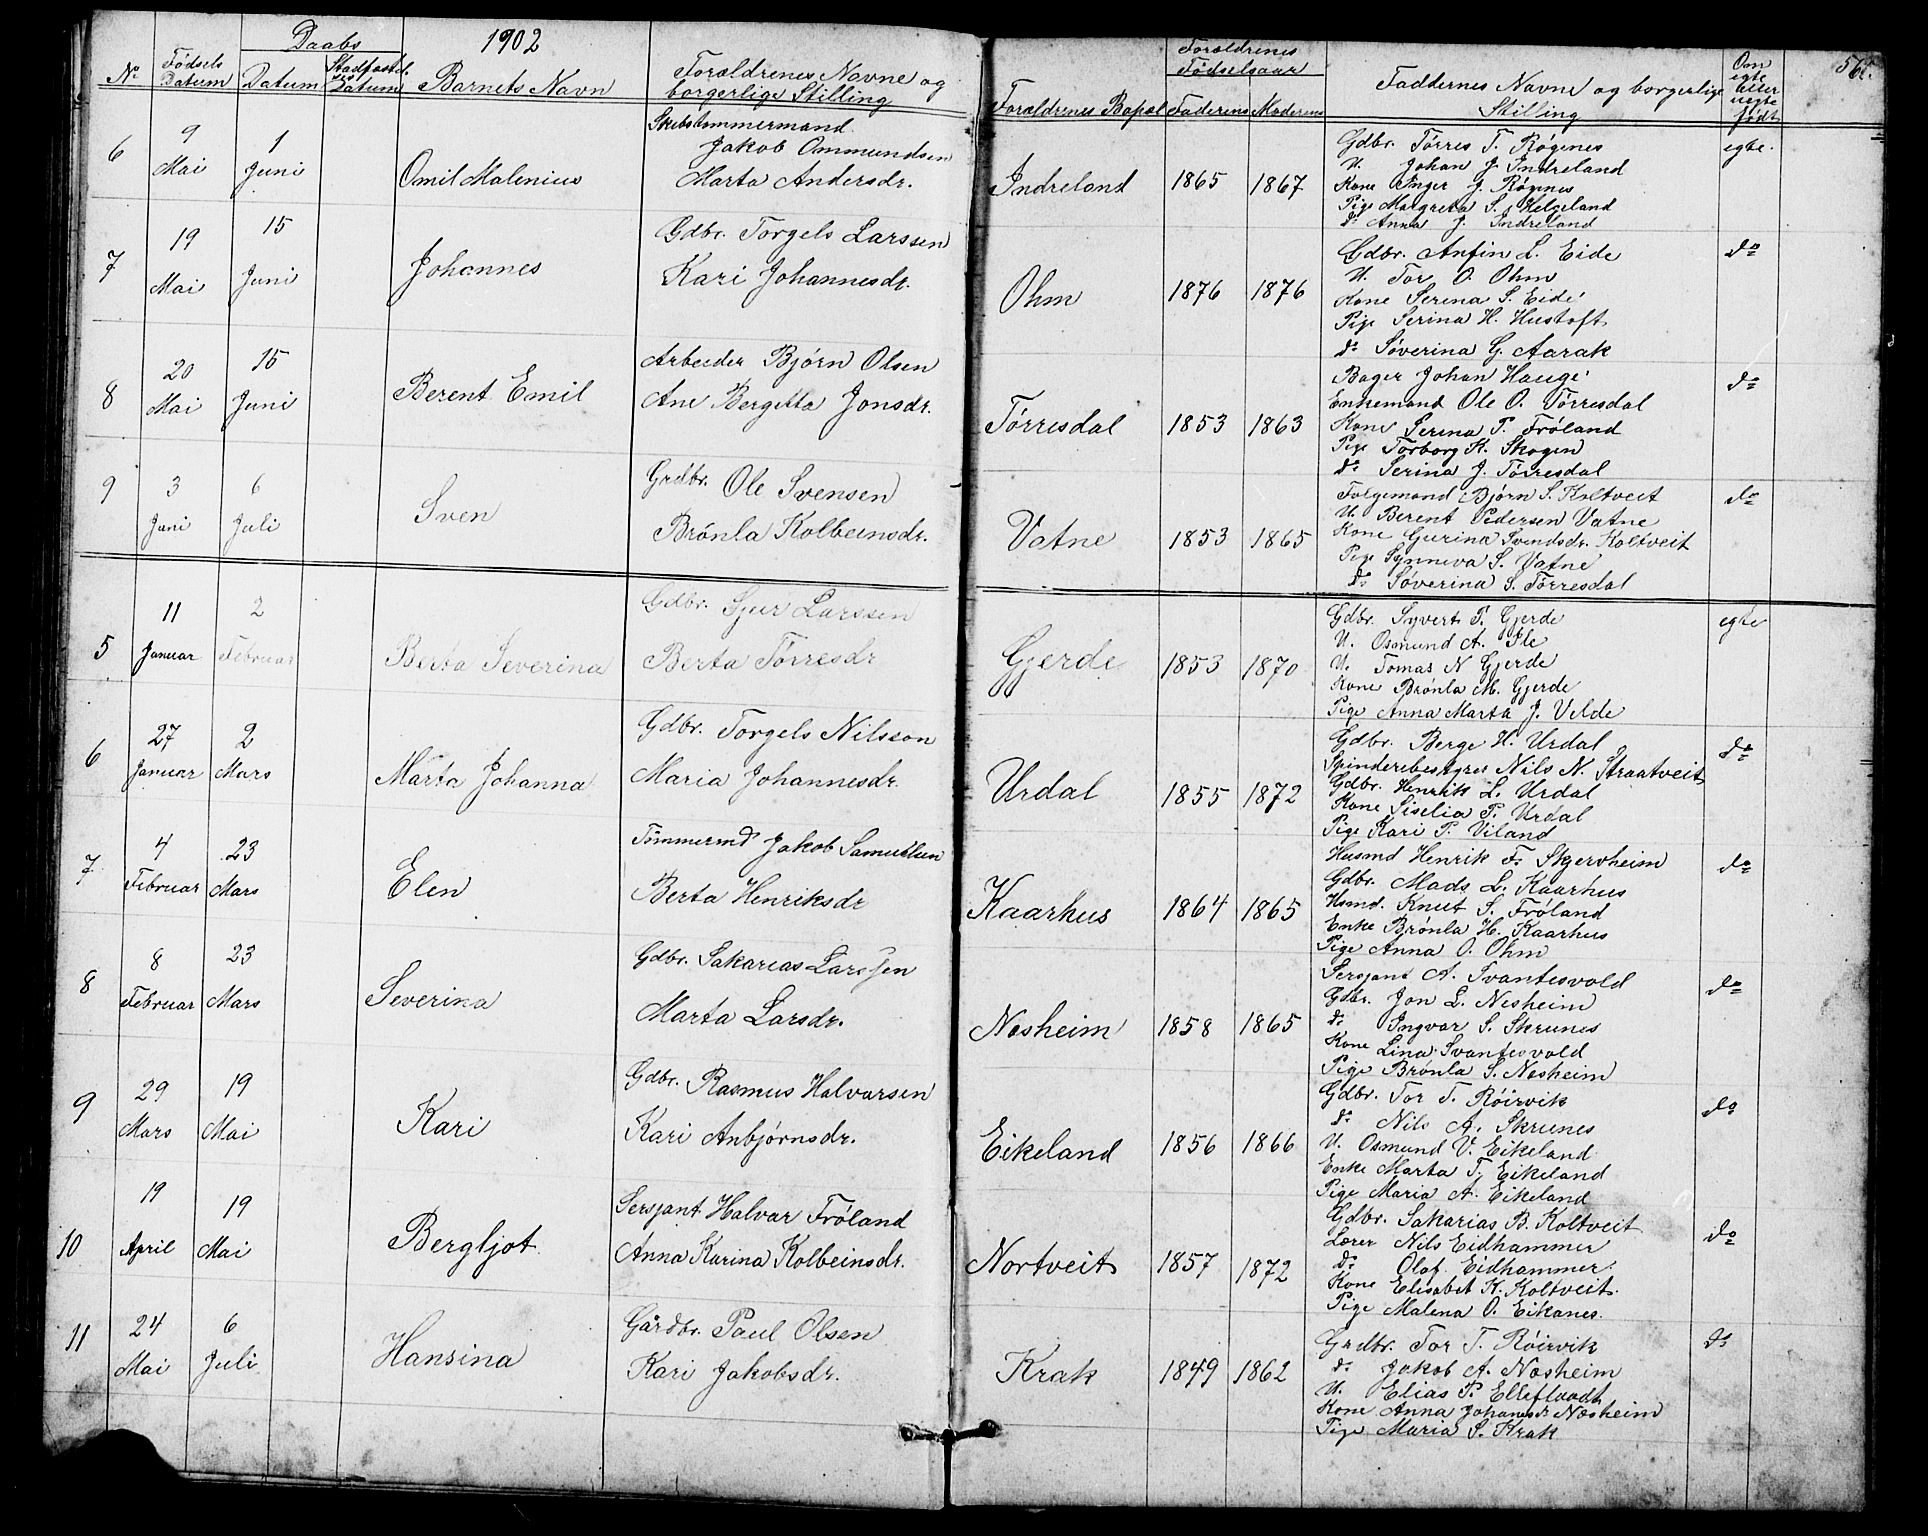 1902
56
Daabs
Forældrenes
Fødselsaar
No
Fødsels
Datum
Datum
Stadfæstel.
Datum
Barnets Navn
Forældrenes Navne og
borgerlige Stilling
Forældrenes Bopæl
Faderens
Moderens
Faddernes Navne og borgerlige
Stilling
Om
egte
eller
uegte
født
6
9
Mai
1
Juni
Omil Malenius
Skibstømmermand
Jakob Ommundsen
Marta Andersdr.
Indreland
1865
1867
Gdbr. Tørres T. Røgenes
U. Johan J. Indreland
Kone Inger J. Røgenes
Pige Margreta S. Helgeland
do Anna J. Indreland
egte.
7
19
Mai
15
Juni
Johannes
Gdbr. Torgels Larssen
Kari Johannesdr.
Ohm
1876
1876
Gdbr. Anfin L. Eide
U. Tor O. Ohm
Kone Serina S. Eide
Pige Serina H. Hustoft
do Søverina G. Aarak
do
8
20
Mai
15
Juni
Berent Emil
Arbeider Bjørn Olsen
Ane Bergitta Jonsdr.
Tørresdal
1853
1863
Bager Johan Hauge
Enkemand Ole O. Tørresdal
Kone Serina P. Frøland
Pige Torborg K. Skogen
do Serina J. Tørresdal
do
9
3
Juni
6
Juli
Sven
Grdbr. Ole Svensen
Brønla Kolbeinsdr.
Vatne
1853
1865
Forgemand Bjørn S. Koltveit
U. Berent Pedersen Vatne
Kone Gurina Svendsdr. Koltveit
Pige Synneva S. Vatne
do Søverina S. Tørresdal
do
5
11
Januar
2
Februar
Berta Severina
Gdbr. Sjur Larssen
Berta Tørresdr
Gjerde
1853
1870
Gdbr. Syvert P. Gjerde
U. Osmund A. Ile
U. Tomas N Gjerde
Kone Brønla M. Gjerde
Pige Anna Marta J. Velde
egte
6
27
Januar
2
Mars
Marta Johanna
Gdbr. Torgels Nilsson
Maria Johannesdr.
Urdal
1855
1872
Gdbr. Berge H. Urdal
Spinderibestyrer Nils N. Straatveit
Gdbr. Henrik L. Urdal
Kone Siselia P. Urdal
Pige Kari P. Viland
do
7
4
Februar
23
Mars
Elen
Tømmermd Jakob Samuelsen
Berta Henriksdr
Kaarhus
1864
1865
Husmd Henrik F. Skjervheim
Gdbr. Mads L. Kaarhus
Hsmd. Knut S. Frøland
Enke Brønla H. Kaarhus
Pige Anna O. Ohm
do
8
8
Februar
23
Mars
Severina
Gdbr. Sakarias Larssen
Marta Larsdr.
Næsheim
1858
1865
Sersjant A. Svantesvold
Gdbr. Jon L. Nesheim
do Ingvar S. Skrunes
Kone Lina Svantesvold
Pige Brønla S. Næsheim
do
9
29
Mars
19
Mai
Kari
Gdbr. Rasmus Halvorsen
Kari Anbjørnsdr.
Eikeland
1856
1866
Gdbr. Tor T. Røirvik
do Nils A. Skrunes
U. Osmund V. Eikeland
Enke Marta T. Eikeland
Pige Maria A. Eikeland
do
10
19
April
19
Mai
Bergljot
Sersjant Halvar Frøland
Anna Karina Kolbeinsdr.
Nortveit
1857
1872
Gdbr. Sakarias B. Koltveit
Lærer Nils Eidhammer
do Olaf Eidhammer
Kone Elisabet K. Koltveit
Pige Malena O. Eikanes.
do
11
24
Mai
6
Juli
Hansina
Gårdbr. Paul Olsen
Kari Jakobsdr.
Krak
1849
1862
Grdbr. Tor T. Røirvik
do Jakob A. Næsheim
U. Elias P. Elleflaadt
Kone Anna Johannesdr Næsheim
Pige Maria S. Krak
do